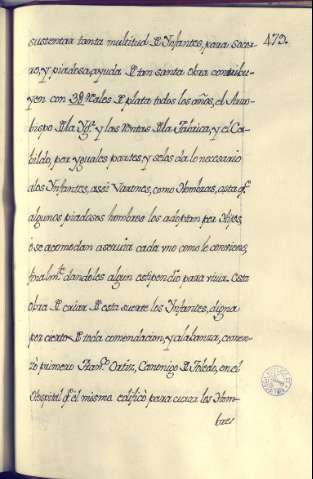 sustentar tanta multitud de Ynfantes, para socor- 479.
ro, y piadosa ayuda de tan santa obra contribu-
yen con Reales de plata todos los años, el Arzo-
bispo de la Ygª y las Rentas de la Fabrica, y el Ca-
bildo, por yguales partes, y seles da lo necesario
a los Ynfantes, assi Varones, como Hembras, asta qᵉ
algunos piadosos hombres los adoptan por Hijos,
ò se acomodan a servir cada vno como le conviene,
finalmᵗᵉ dandoles algun estipendio para vivir. Esta
obra de criar de esta suerte los Ynfantes, digna
por cierto de toda comendacion, y alabanza, comen-
zò primero Franᶜᵒ Ortiz, Canonigo de Toledo, en el
Ospital qᵉ èl mismo edificò para curar los Hom-
bres